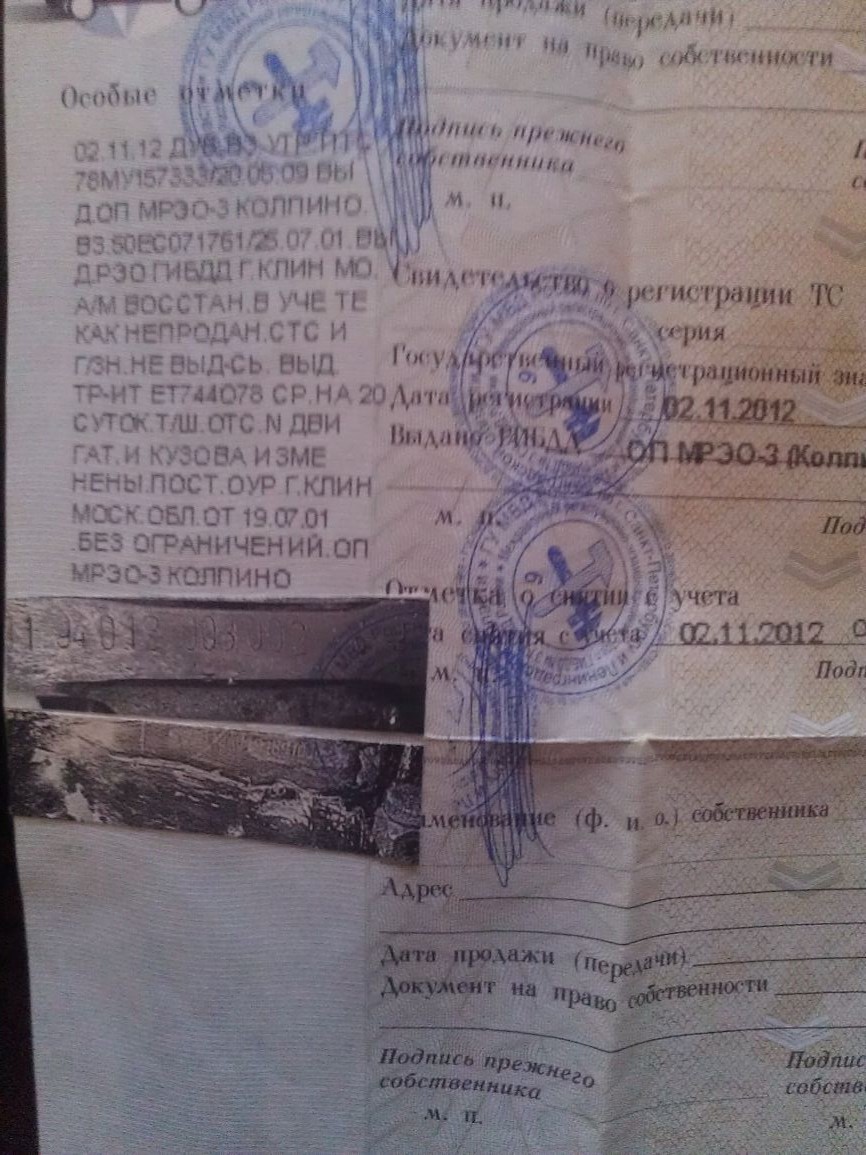 Дата продажи (передачи)
Документ на право собственности
Особые отметки
Подпись прежнего
собственника
м. п.
02.11.12 ДУБ.ВЗ УТР.ПТС
78МУ157333/20.05.09 ВЫ
Д.ОП МРЭО-3 КОЛПИНО.
ВЗ.50ЕС071761/25.07.01.ВЫ
Д.РЭО ГИБДД Г.КЛИН МО.
А/М ВОССТАН.В УЧЕТЕ
КАК НЕПРОДАН.СТС И
Г/ЗН.НЕ ВЫД-СЬ. ВЫД.
ТР-ИТ ЕТ744О78 СР.НА 20
СУТОК.Т/Ш.ОТС.N ДВИ
ГАТ.И КУЗОВА ИЗМЕ
НЕНЫ.ПОСТ.ОУР Г.КЛИН
МОСК.ОБЛ.ОТ 19.07.01
.БЕЗ ОГРАНИЧЕНИЙ.ОП
МРЭО-3 КОЛПИНО
Свидетельство о регистрации ТС
серия
Государственный регистрационный
Дата регистрации 02.11.2012
Выдано ГИБДД ОП МРЭО-3
м. п.
Отметка о снятии с учета
Дата снятия с учета 02.11.2012
м. п.
(ф. и. о.) собственника
Адрес
Дата продажи (передачи)
Документ на право собственности
Подпись прежнего
собственника
м. п.
м.